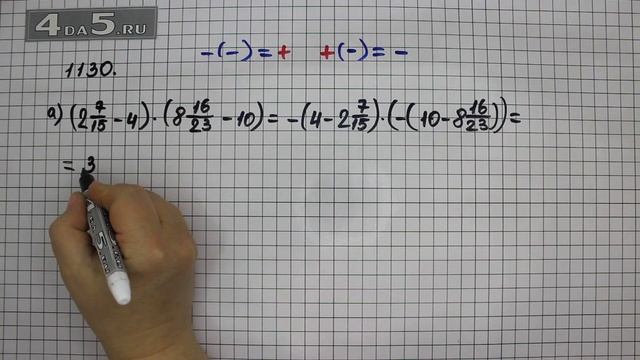 4DA5.RU
-(-)=+ +(-)=-
1130.
а) (2 7/15 - 4) · (8 16/23 - 10) = -(4 - 2 7/15) · (-(10 - 8 16/23)) =
= 3